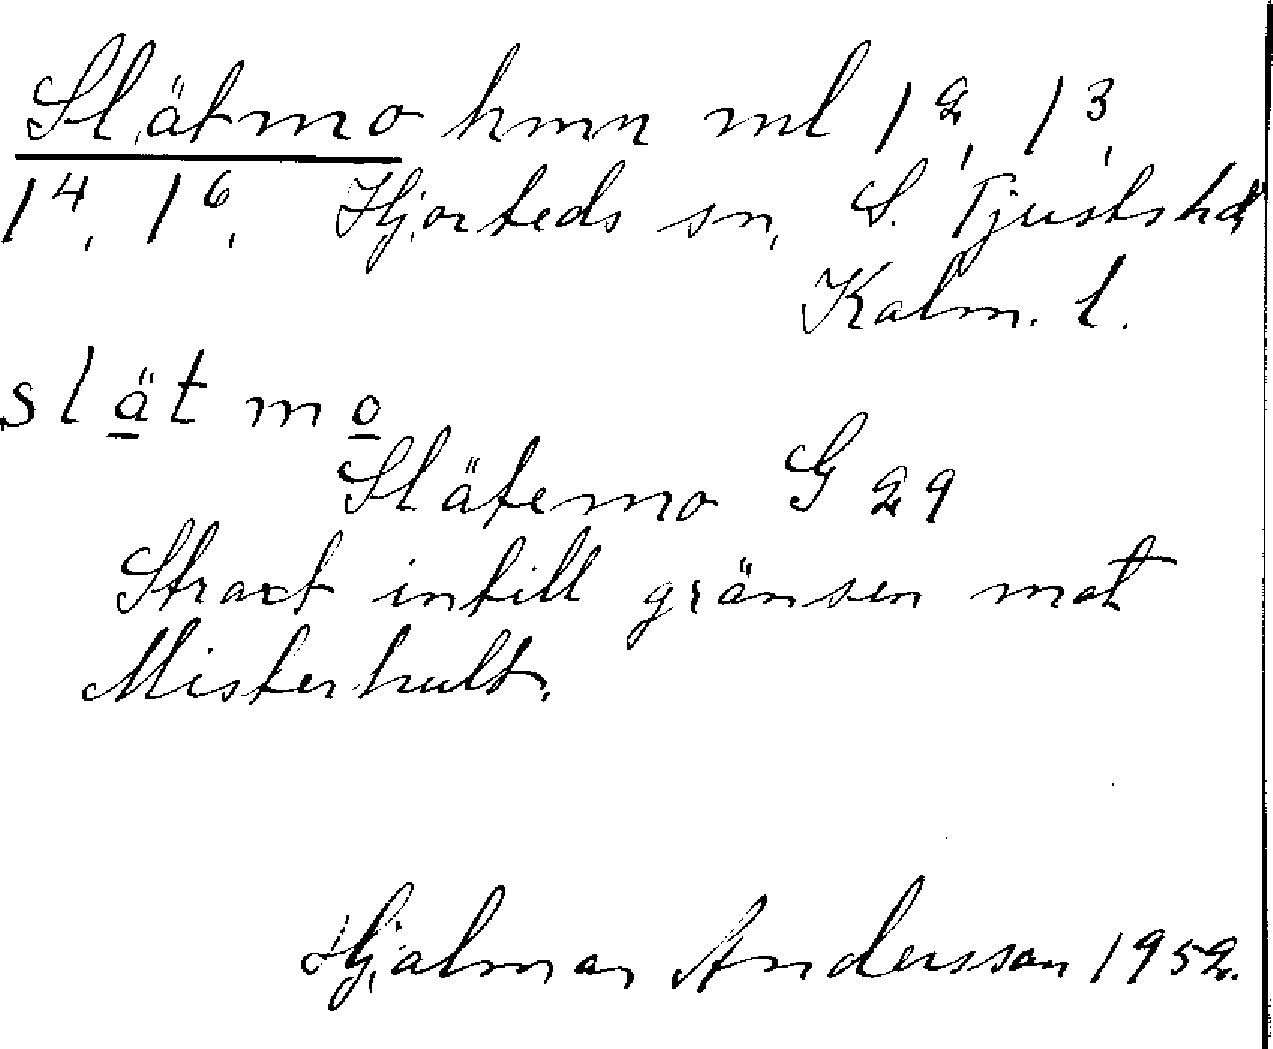 Slätmo hmn ml 1², 1³,
1⁴, 1⁶, Hjorteds sn, S. Tjusts hd,
Kalm. l.
slätmo
Slätemo G 29
Strax intill gränsen mot
Misterhult.
Hjalmar Andersson 1952.